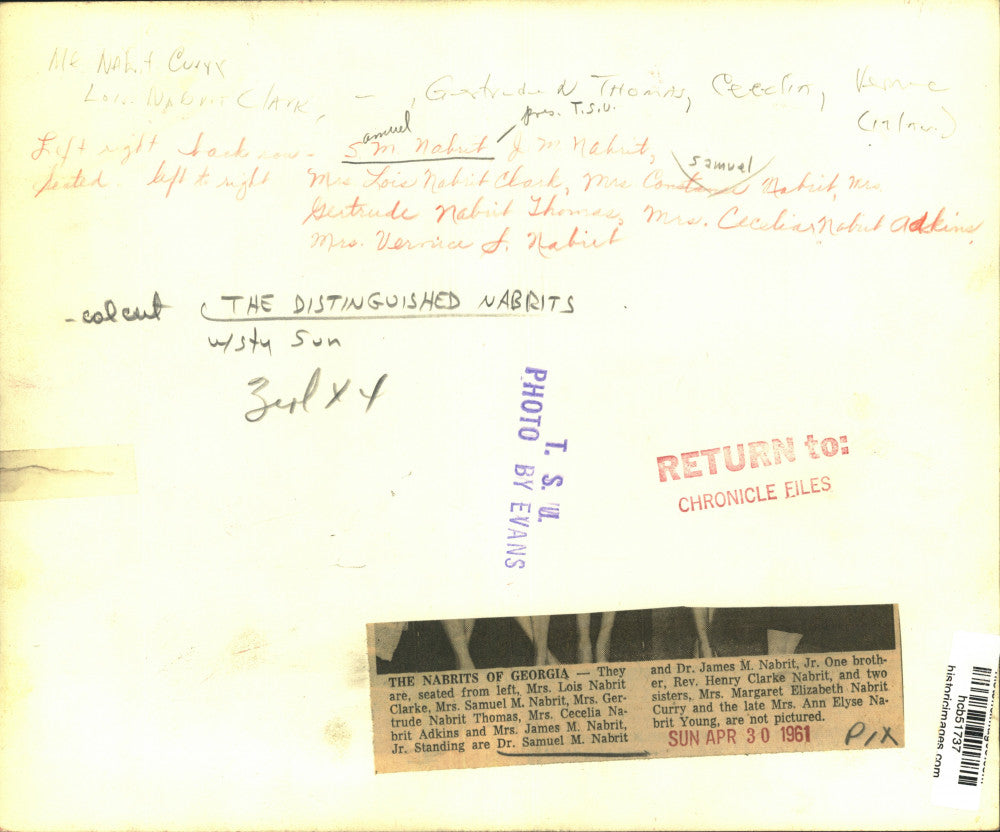 Nabrit Curry
Lois Nabrit Clark, — , Gertrude N Thomas, Cecelia,
pres. T.S.U.
amuel
Left right back row - S M Nabrit J M Nabrit,
Samuel
seated. left to right Mrs Lois Nabrit Clark, Mrs Constance Nabrit, Mrs
Gertrude Nabrit Thomas, Mrs. Cecelia Nabrit Adkins,
Mrs. Vernice J. Nabrit
- colcut THE DISTINGUISHED NABRITS
w/sty Sun
T. S. U.
PHOTO BY EVANS
RETURN to:
CHRONICLE FILES
THE NABRITS OF GEORGIA — They
are, seated from left, Mrs. Lois Nabrit
Clarke, Mrs. Samuel M. Nabrit, Mrs. Ger-
trude Nabrit Thomas, Mrs. Cecelia Na-
brit Adkins and Mrs. James M. Nabrit,
Jr. Standing are Dr. Samuel M. Nabrit
and Dr. James M. Nabrit, Jr. One broth-
er, Rev. Henry Clarke Nabrit, and two
sisters, Mrs. Margaret Elizabeth Nabrit
Curry and the late Mrs. Ann Elyse Na-
brit Young, are not pictured.
SUN APR 30 1961 PIX
hcb51737
historicimages.com